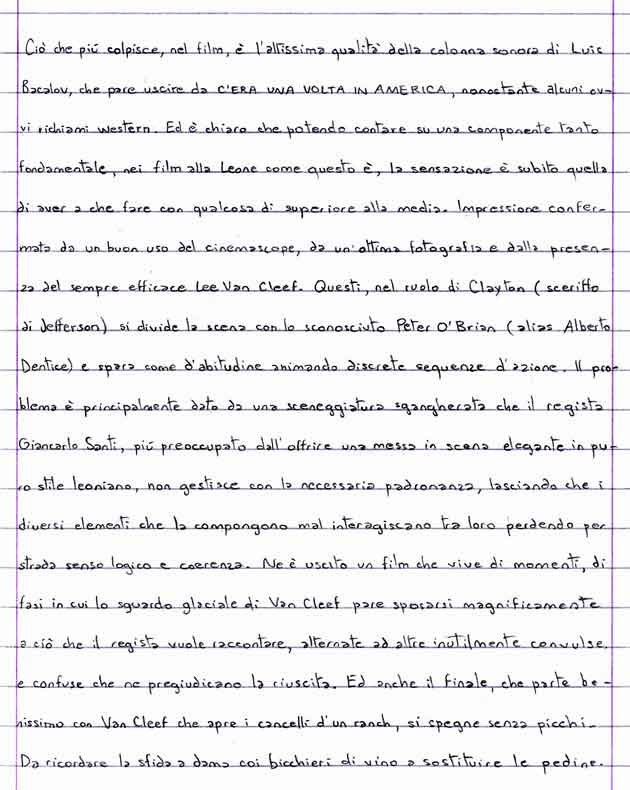 Ciò che più colpisce, nel film, è l'altissima qualità della colonna sonora di Luis
Bacalov, che pare uscire da C'ERA UNA VOLTA IN AMERICA, nonostante alcuni ov-
vi richiami western. Ed è chiaro che potendo contare su una componente tanto
fondamentale, nei film alla Leone come questo è, la sensazione è subito quella
di aver a che fare con qualcosa di superiore alla media. Impressione confer-
mata da un buon uso del cinemascope, da un'ottima fotografia e dalla presen-
za del sempre efficace Lee Van Cleef. Questi, nel ruolo di Clayton (sceriffo
di Jefferson) si divide la scena con lo sconosciuto Peter O'Brian (alias Alberto
Dentice) e spara come d'abitudine animando discrete sequenze d'azione. Il pro-
blema è principalmente dato da una sceneggiatura sgangherata che il regista
Giancarlo Santi, più preoccupato dall'offrire una messa in scena elegante in pu-
ro stile leoniano, non gestisce con la necessaria padronanza, lasciando che i
diversi elementi che la compongono mal interagiscano tra loro perdendo per
strada senso logico e coerenza. Ne è uscito un film che vive di momenti, di
fasi in cui lo sguardo glaciale di Van Cleef pare sposarsi magnificamente
a ciò che il regista vuole raccontare, alternate ad altre inutilmente convulse
e confuse che ne pregiudicano la riuscita. Ed anche il finale, che parte be-
nissimo con Van Cleef che apre i cancelli d'un ranch, si spegne senza picchi.
Da ricordare la sfida a dama coi bicchieri di vino a sostituire le pedine.